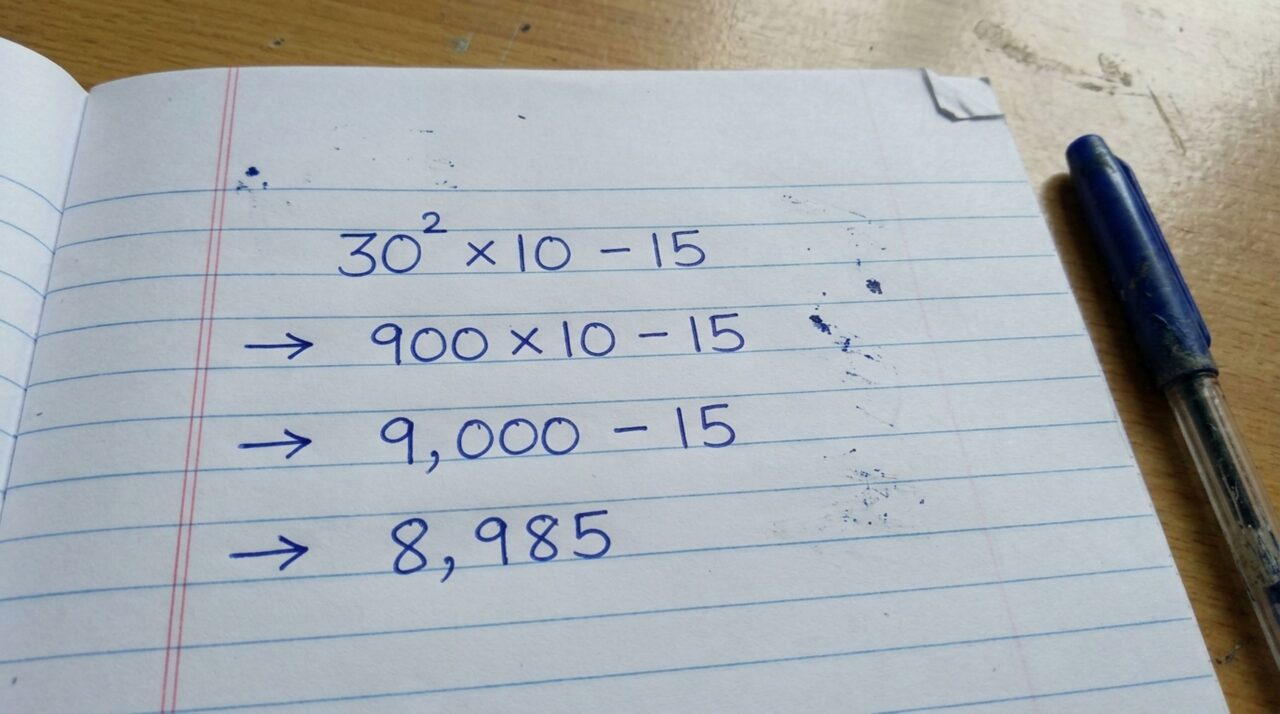 30² × 10 – 15
→ 900 × 10 – 15
→ 9,000 – 15
→ 8,985